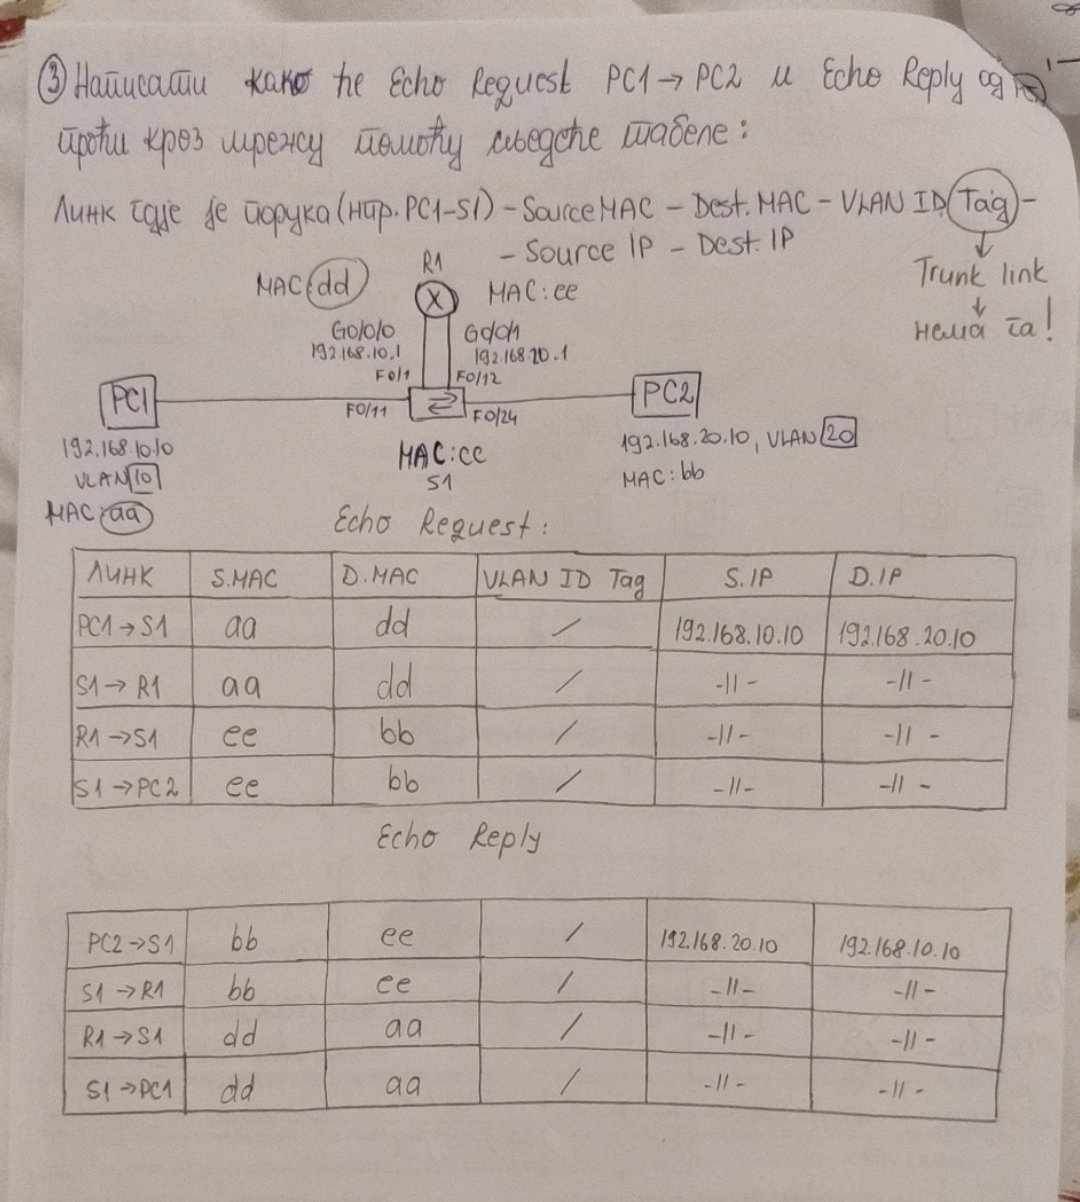 ③ Написати како ће Echo Request PC1→PC2 и Echo Reply од
проћи кроз мрежу помоћу сљедеће табеле:
Линк гдје је порука (нпр. PC1-S1) - Source MAC - Dest. MAC - VLAN ID Tag -
- Source IP - Dest. IP
Trunk link
нема га!
R1
MAC: dd
MAC: ee
G0/0/0
192.168.10.1
G0/0/1
192.168.20.1
F0/1
F0/12
PC1
F0/11
F0/24
PC2
192.168.10.10
VLAN 10
MAC: aa
MAC: cc
S1
192.168.20.10, VLAN 20
MAC: bb
Echo Request:
ЛИНК S.MAC D.MAC VLAN ID Tag S.IP D.IP
PC1→S1 aa dd / 192.168.10.10 192.168.20.10
S1→R1 aa dd / -||- -||-
R1→S1 ee bb / -||- -||-
S1→PC2 ee bb / -||- -||-
Echo Reply
PC2→S1 bb ee / 192.168.20.10 192.168.10.10
S1→R1 bb ee / -||- -||-
R1→S1 dd aa / -||- -||-
S1→PC1 dd aa / -||- -||-